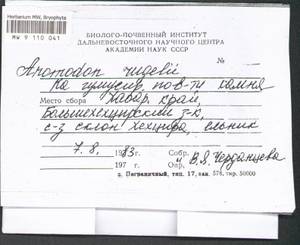 Herbarium MW, Bryophyta
MW 9 110 041
БИОЛОГО-ПОЧВЕННЫЙ ИНСТИТУТ
ДАЛЬНЕВОСТОЧНОГО НАУЧНОГО ЦЕНТРА
АКАДЕМИИ НАУК СССР
Anomodon rugelii
На гумусир. по-в-ти камня
Место сбора Хабар. край,
Большехехцирский з-к,
с-з склон Хехцира, ельник
7.8. 1983 г. Собр.
197 г. Опр. В.Я. Черданцева
г. Пограничный, тип. 17, зак. 576, тир. 50000